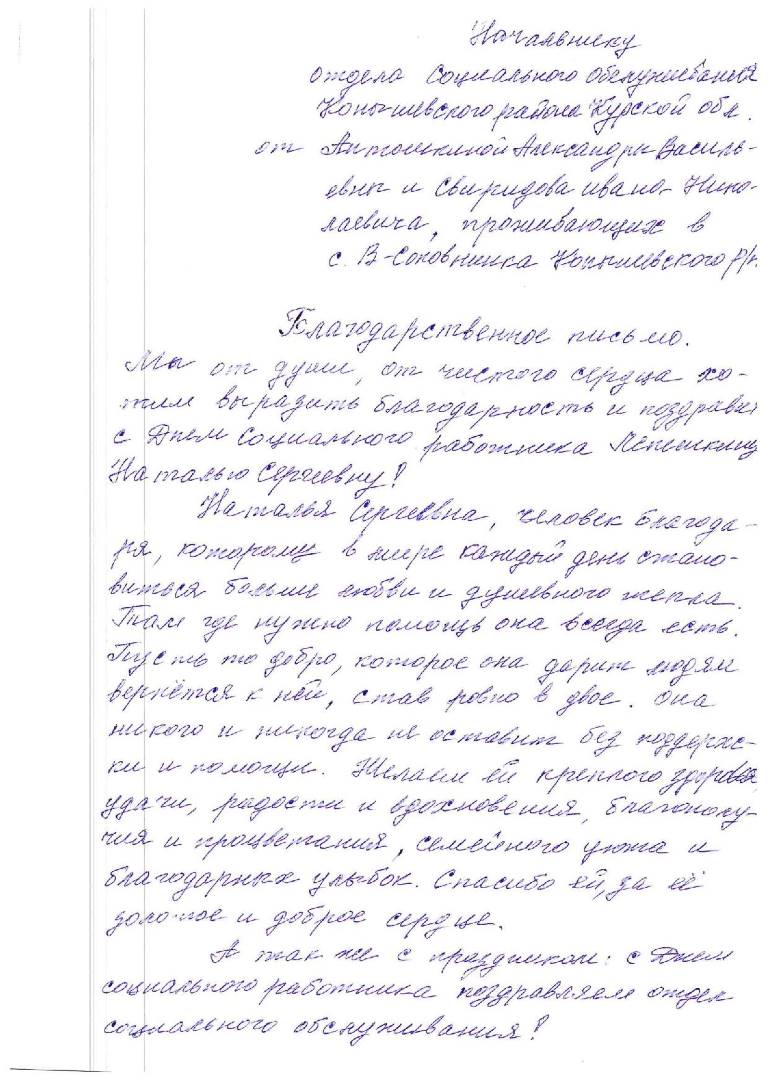 Начальнику
отдела социального обслуживания
Конышевского района Курской обл.
от Антошкиной Александры Василь-
евны и Свиридова Ивана Нико-
лаевича, проживающих в
с. В-Соковнинка Конышевского р/н.
Благодарственное письмо.
Мы от души, от чистого сердца хо-
тим выразить благодарность и поздравить
с Днем социального работника Лепешкину
Наталью Сергеевну!
Наталья Сергеевна, человек благода-
ря, которому в мире каждый день стано-
виться больше любви и душевного тепла.
Там где нужно помощь она всегда есть.
Пусть то добро, которое она дарит людям
вернётся к ней, став ровно в двое. Она
никого и никогда не оставит без поддерж-
ки и помощи. Желаем ей крепкого здоровья,
удачи, радости и вдохновения, благополу-
чия и процветания, семейного уюта и
благодарных улыбок. Спасибо ей, за её
золотое и доброе сердце.
А так же с праздником: с Днем
социального работника поздравляем отдел
социального обслуживания!